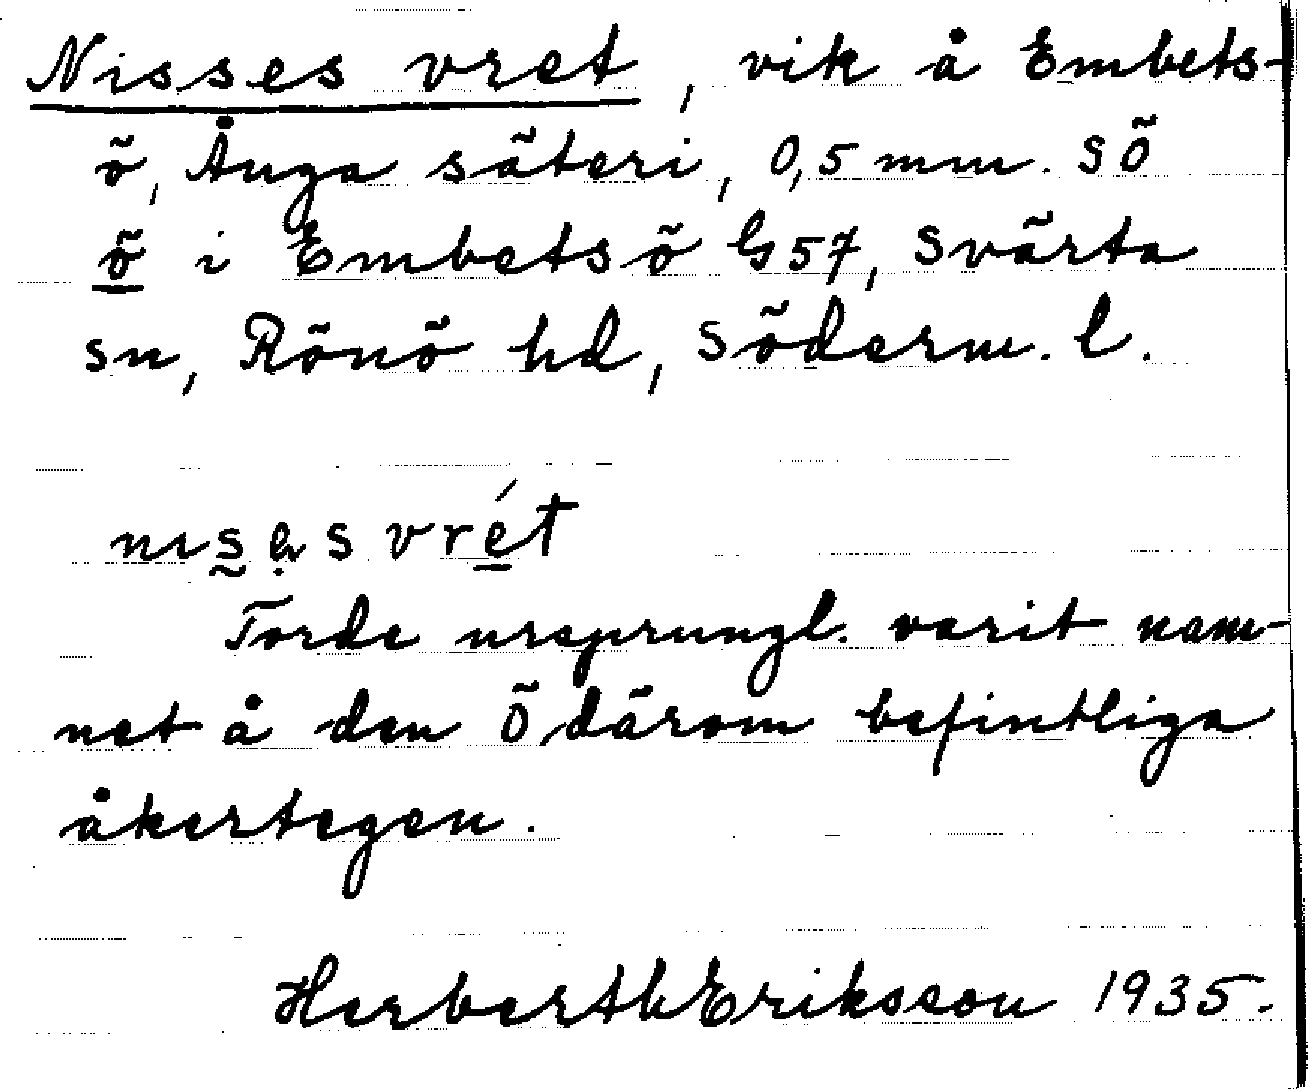 Nisses vret, vik å Embets-
ö, Ånga säteri, 0,5 mm. SÖ
ö i Embetsö G57, Svärta
sn, Rönö hd, Söderm. l.
nısəsvrét
Torde urspringl. varit nam-
net å den Ö därom befintliga
åkertegen.
Herbert Eriksson 1935.